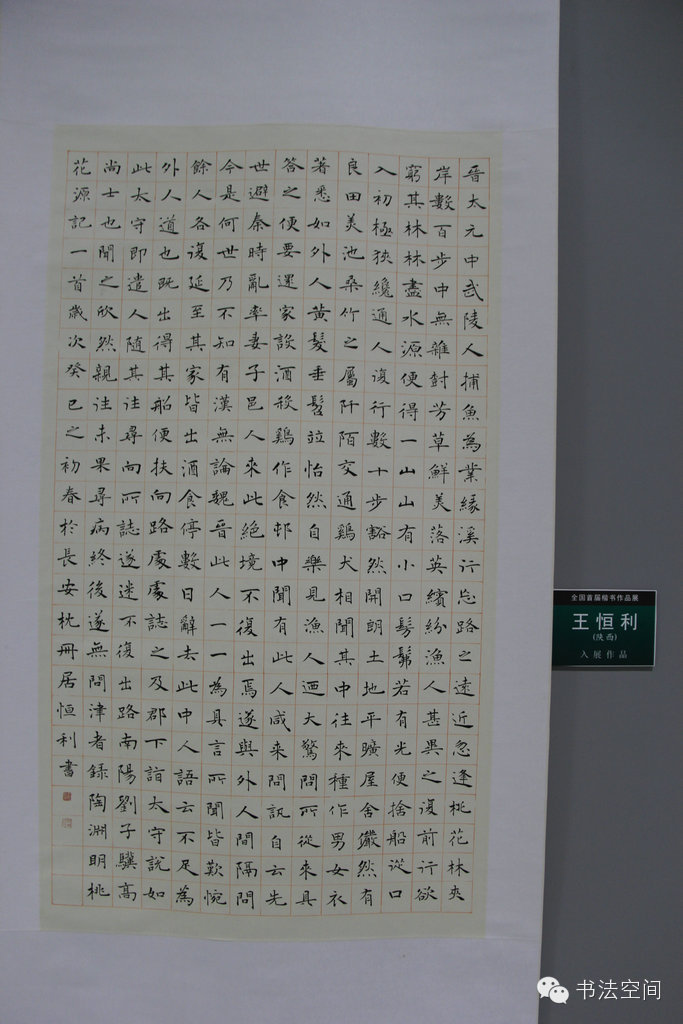 晉太元中武陵人捕魚為業緣溪行忘路之遠近忽逢桃花林夾
岸數百步中無雜封芳草鮮美落英繽紛漁人甚異之復前行欲
窮其林林盡水源便得一山山有小口髣髴若有光便捨船從口
入初極狹纔通人復行數十步豁然開朗土地平曠屋舍儼然有
良田美池桑竹之屬阡陌交通鷄犬相聞其中往來種作男女衣
著悉如外人黃髮垂髫竝怡然自樂見漁人迺大驚問所從來具
答之便要還家設酒殺鷄作食邨中聞有此人咸来問訊自云先
世避秦時亂率妻子邑人來此絕境不復出焉遂與外人間隔問
今是何世乃不知有漢無論魏晉此人一一為具言所聞皆歎惋
餘人各復延至其家皆出酒食停數日辭去此中人語云不足為
外人道也既出得其船便扶向路處處誌之及郡下詣太守說如
此太守即遣人隨其往尋向所誌遂迷不復出路南陽劉子驥高
尚士也聞之欣然親往未果尋病終後遂無問津者録陶淵明桃
花源記一首歲次癸巳之初春於長安枕冊居恒利書
全国首届楷书作品展
王恒利
(陕西)
入展作品
书法空间